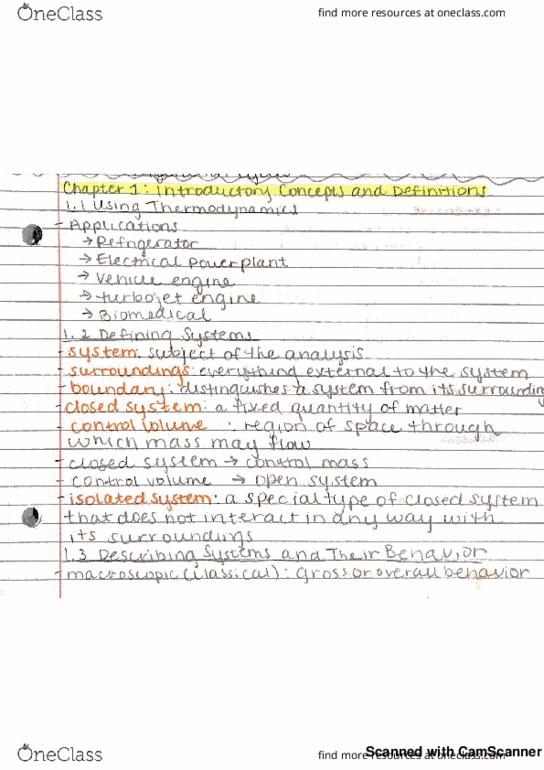 OneClass
find more resources at oneclass.com
Chapter 1: Introductory Concepts and Definitions
1.1 Using Thermodynamics
- Applications
→ Refrigerator
→ Electrical power plant
→ Vehicle engine
→ turbojet engine
→ Biomedical
1.2 Defining Systems
- system: subject of the analysis
- surroundings: everything external to the system
- boundary: distinguishes a system from its surrounding
- closed system: a fixed quantity of matter
- control volume : region of space through
which mass may flow
- closed system → control mass
- control volume → open system
- isolated system: a special type of closed system
that does not interact in any way with
its surroundings
1.3 Describing Systems and Their Behavior
- macroscopic (classical): Gross or overall behavior
OneClass
find more resources at oneclass.com
Scanned with CamScanner